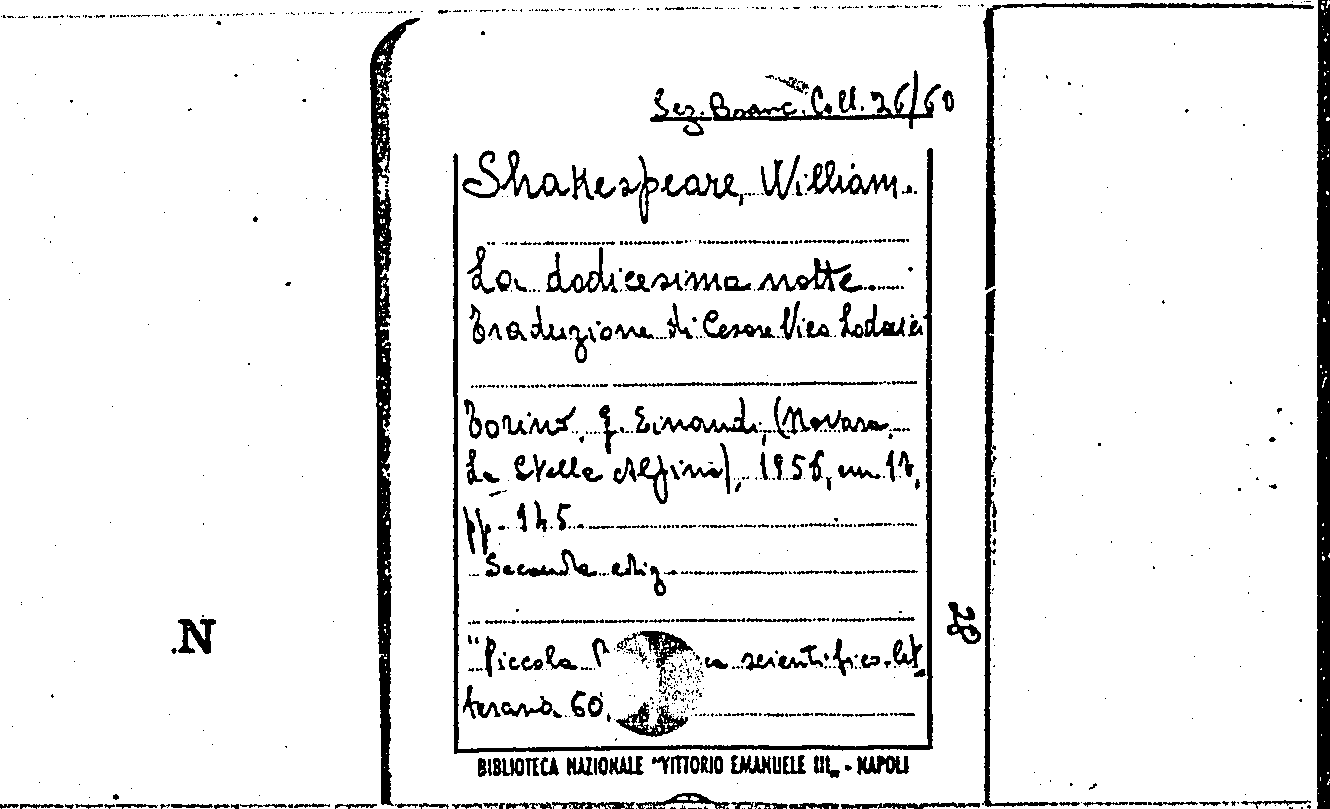 Sez. Branc. Coll. 26/60
Shakespeare, William.
La dodicesima notte.
Traduzione di Cesare Vico Lodovici
Torino, G. Einaudi, (Novara,
La Stella Alpina), 1956, in 12,
pp. 145.
Seconda ediz.
28
.N
"Piccola scientifico-let
teraria 60,
BIBLIOTECA NAZIONALE "VITTORIO EMANUELE III„ - NAPOLI